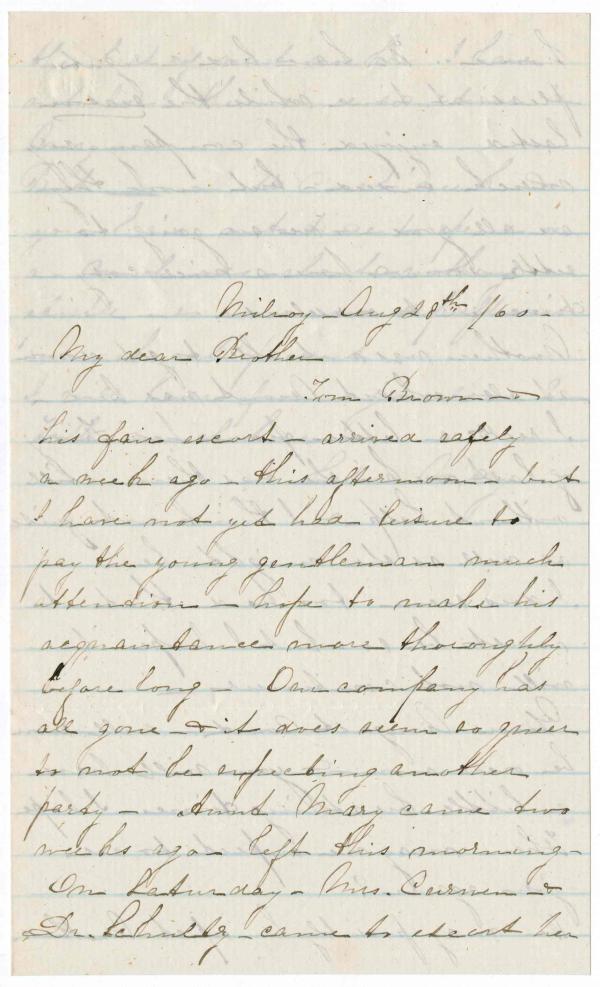 Milroy - Aug 28th /60 -
My dear Brother
Tom Brown - &
his fair escort - arrived safely
a week ago - this afternoon - but
I have not yet had leisure to
pay the young gentleman much
attention - hope to make his
acquaintance more thoroughly
before long - Our company has
all gone - & it does seem so queer
to not be expecting another
party - Aunt Mary came two
weeks ago - left this morning -
On Saturday - Mrs. Curwen - &
Dr. Schultz - came to escort her